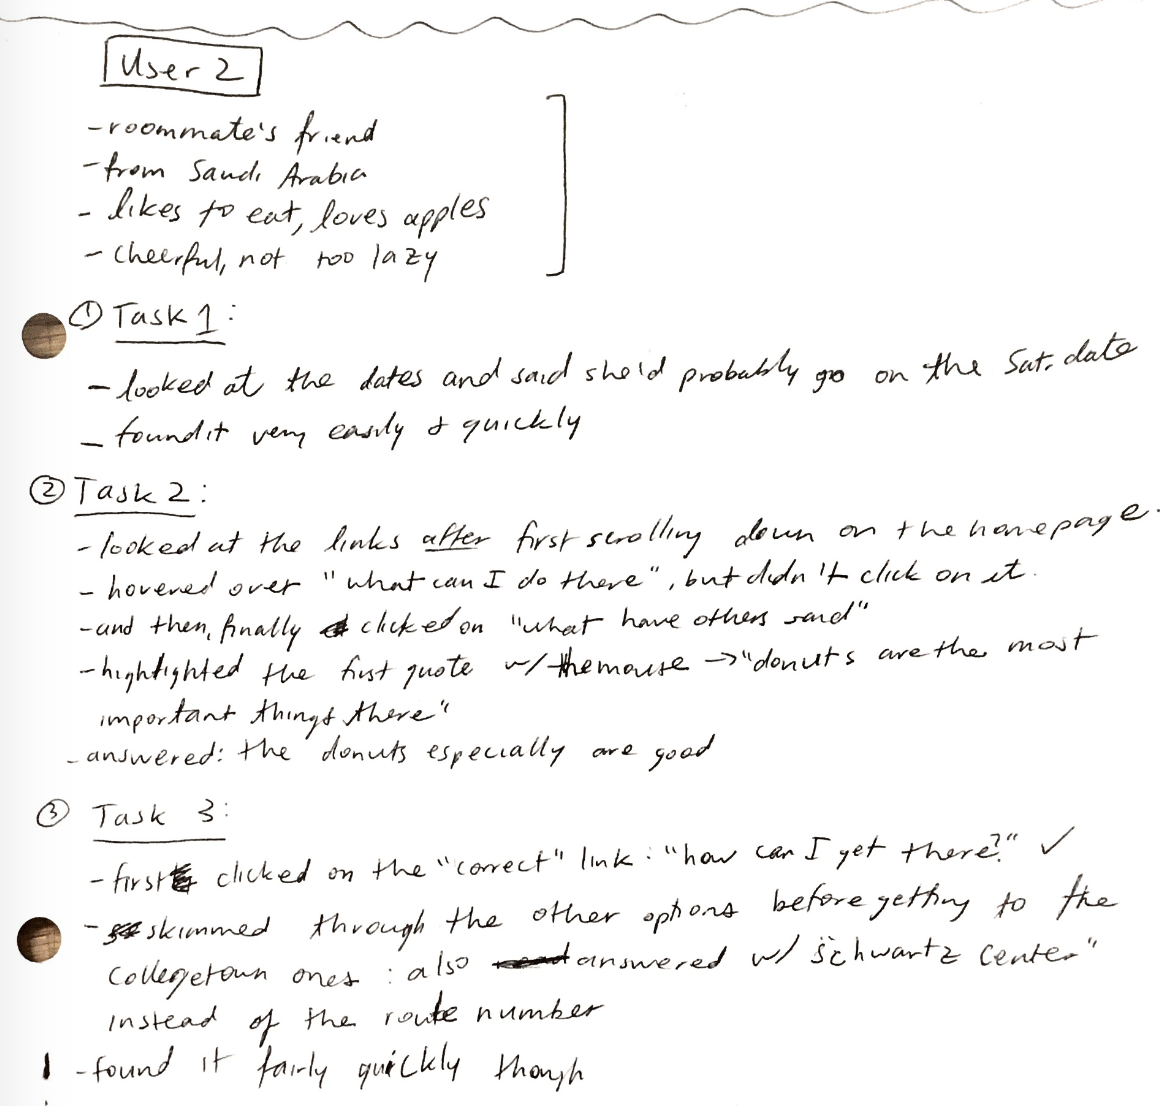 User 2
- roommate's friend
- from Saudi Arabia
- likes to eat, loves apples
- cheerful, not too lazy
① Task 1:
- looked at the dates and said she'd probably go on the Sat. date
- found it very easily & quickly
② Task 2:
- looked at the links after first scrolling down on the homepage.
- hovered over "what can I do there", but didn't click on it.
- and then, finally clicked on "what have others said"
- highlighted the first quote w/ the mouse → "donuts are the most
important things there"
- answered: the donuts especially are good
③ Task 3:
- first clicked on the "correct" link: "how can I get there?" ✓
- skimmed through the other options before getting to the
Collegetown ones: also answered w/ "Schwartz Center"
instead of the route number
- found it fairly quickly though